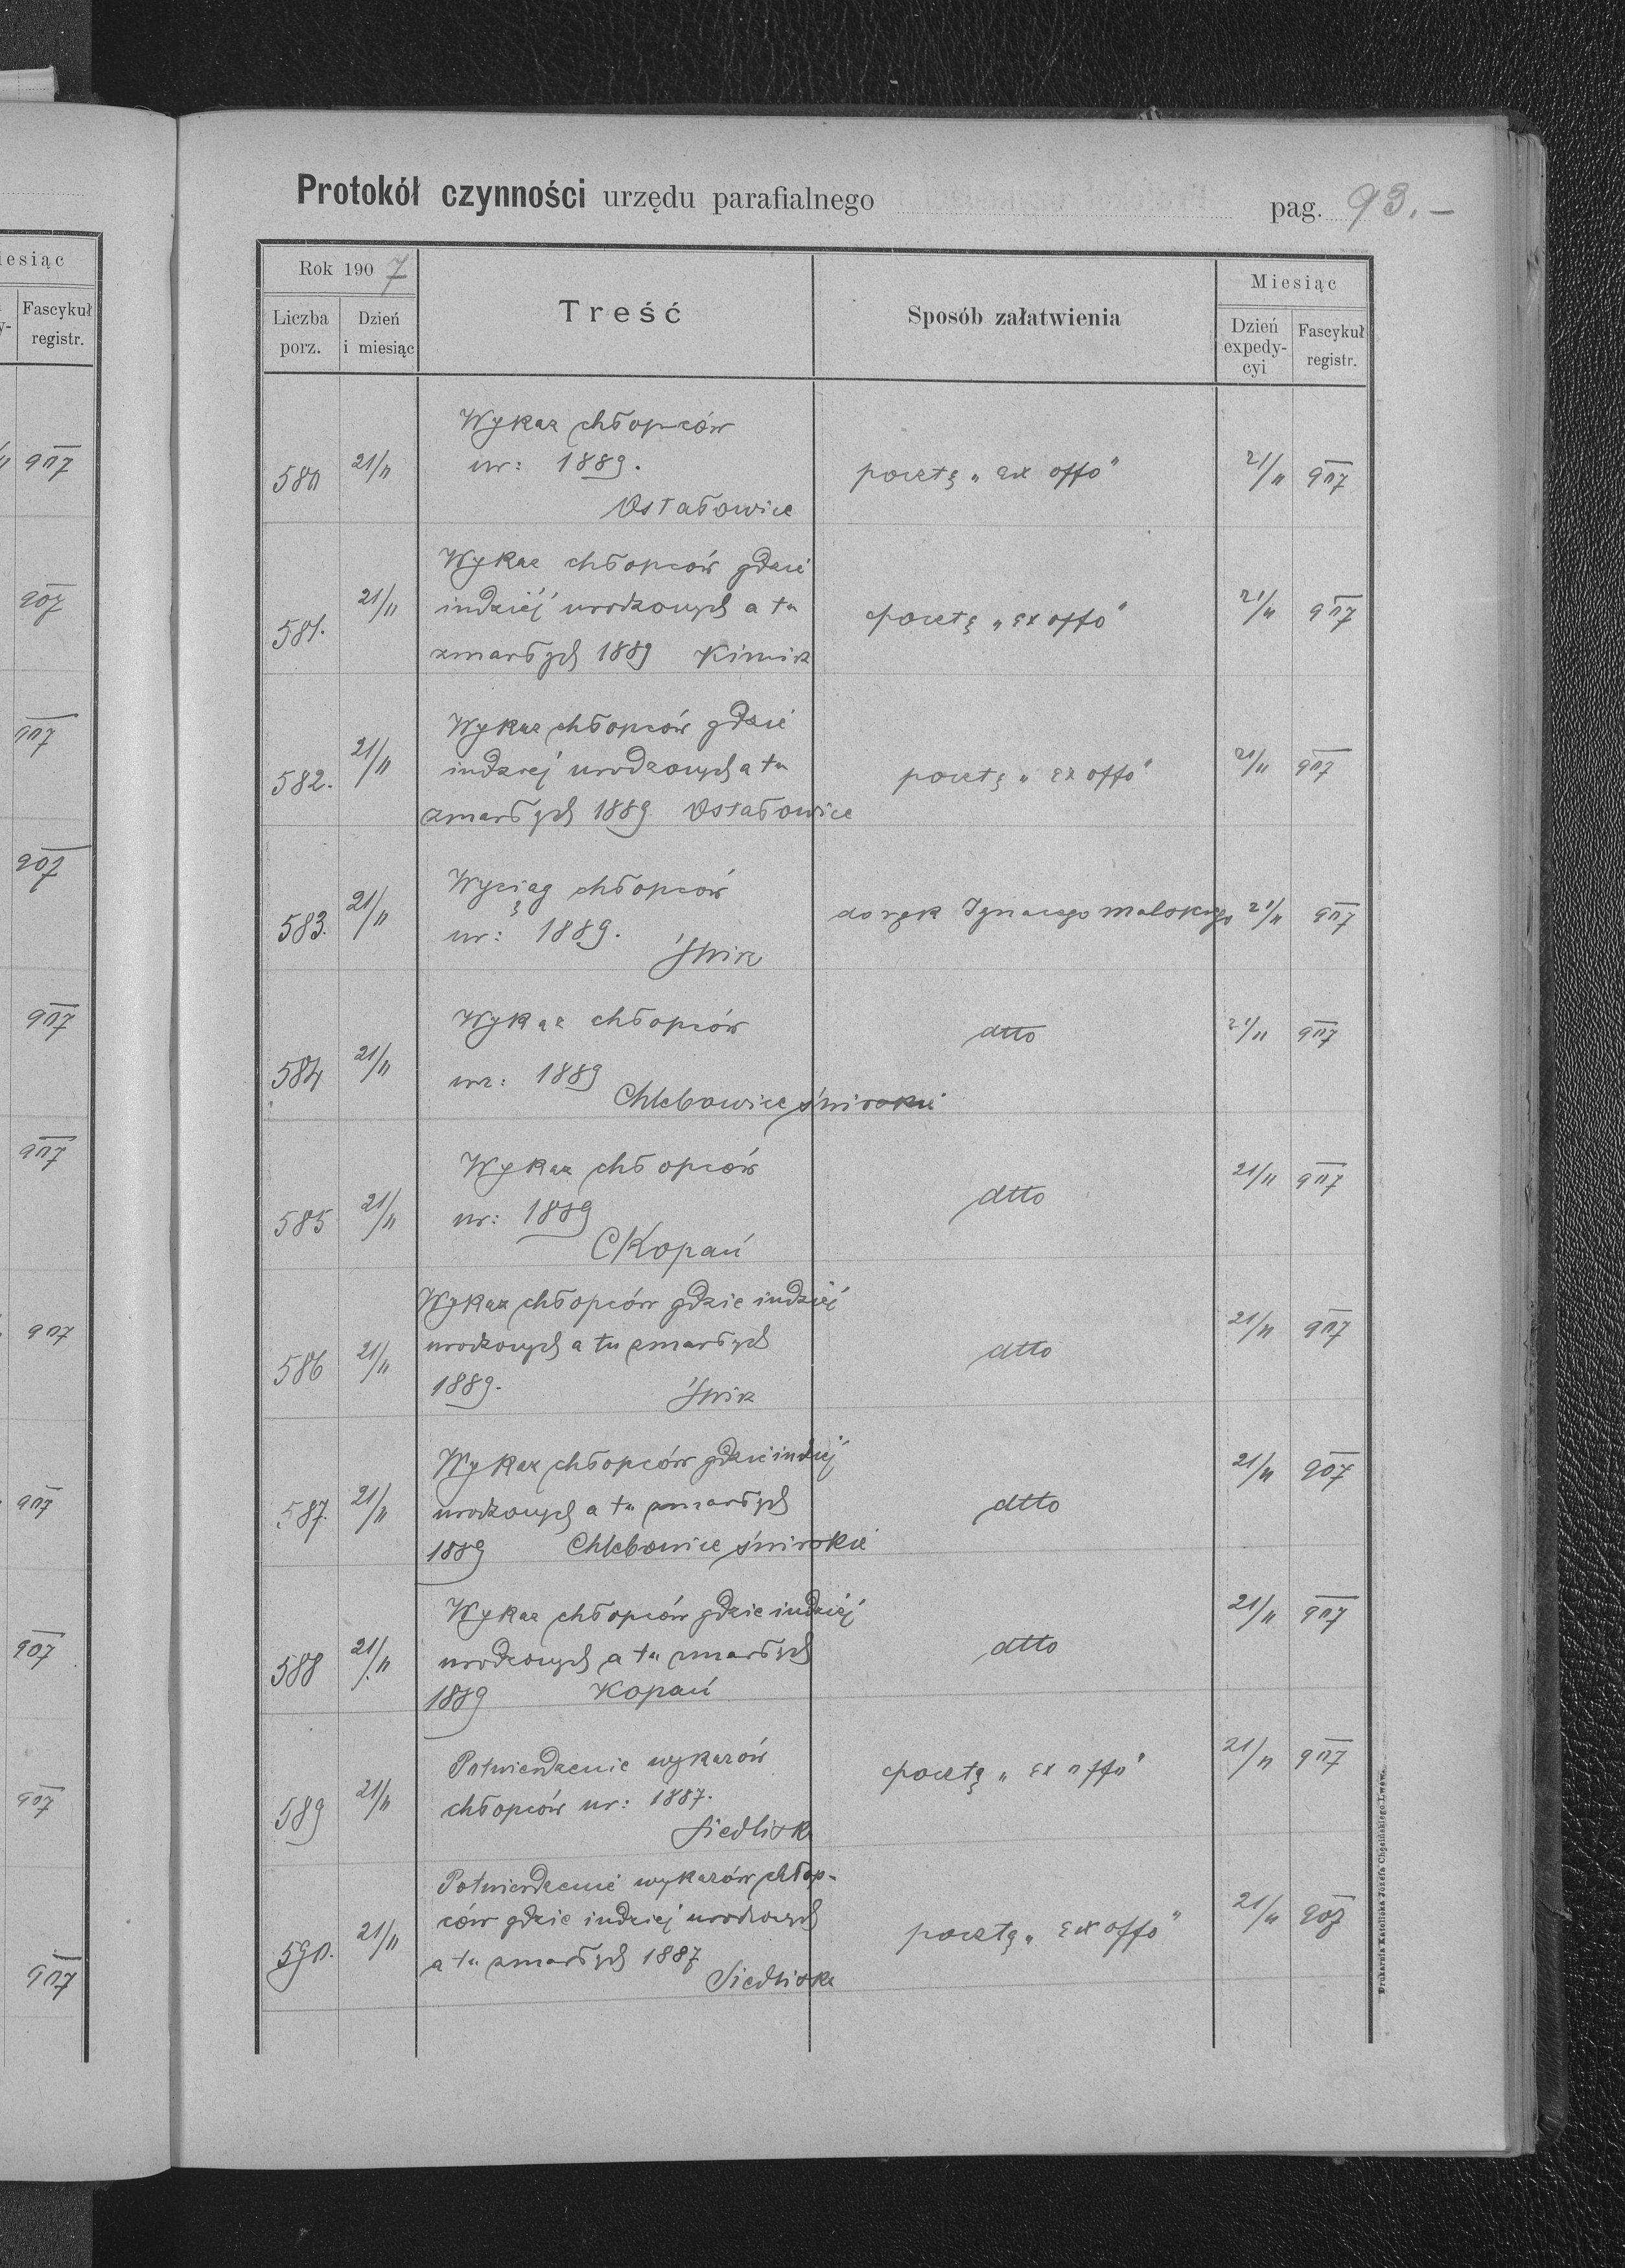 iesiąc
Fascykuł
y-
registr.
907
907
907
907
907
907
907
907
907
907
907
Protokół czynności urzędu parafialnego
pag. 93.-
Rok 1907
Liczba porz.
Dzień i miesiąc
Treść
Sposób załatwienia
Miesiąc
Dzień expedy-cyi
Fascykuł registr.
Wykaz chłopców
580 21/11 ur: 1889. pocztą „ex offo" 21/11 907
Ostałowice
Wykaz chłopców gdzie
581. 21/11 indziej urodzonych a tu pocztą „ex offo" 21/11 907
zmarłych 1889 Kimirz
Wykaz chłopców gdzie
582. 21/11 indziej urodzonych a tu pocztą „ex offo" 21/11 907
zmarłych 1889 Ostałowice
Wyciąg chłopców
583. 21/11 ur: 1889. do rąk Ignacego 21/11 907
Świrz
Wykaz chłopców
584 21/11 ur: 1889 dtto 21/11 907
Chlebowice świrskie
Wykaz chłopców
585 21/11 ur: 1889 dtto 21/11 907
Kopań
Wykaz chłopców gdzie indziej
586 21/11 urodzonych a tu zmarłych dtto 21/11 907
1889. Świrz
Wykaz chłopców gdzie indziej
587. 21/11 urodzonych a tu zmarłych dtto 21/11 907
1889 Chlebowice świrskie
Wykaz chłopców gdzie indziej
588 21/11 urodzonych a tu zmarłych dtto 21/11 907
1889 Kopań
Potwierdzenie wykazów
589 21/11 chłopców ur: 1887. pocztą „ex offo" 21/11 907
Siedliska
Potwierdzenie wykazów chłop-
590. 21/11 ców gdzie indziej urodzonych pocztą „ex offo" 21/11 907
a tu zmarłych 1887
Siedliska
Drukarnia Katolicka Józefa Chęcińskiego Lwów.